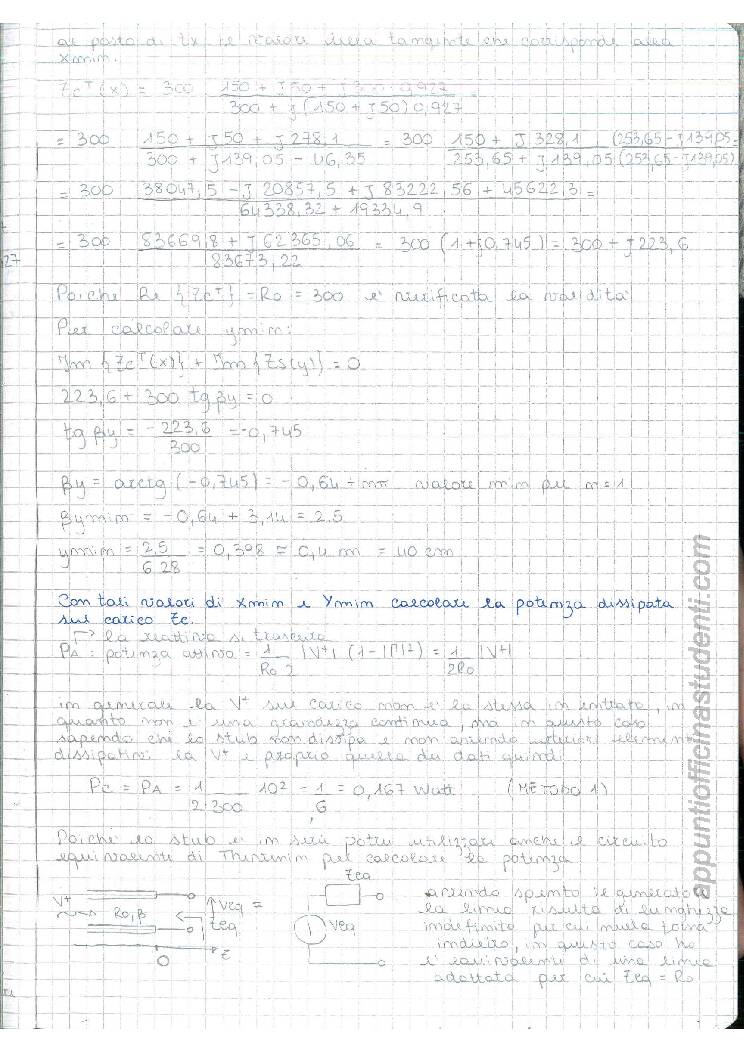 al posto di tx il valore della tangente che corrisponde alla
xmim.
Zc^T(x) = 300 (150 + J50 + J300·0,927)/(300 + J(150 + J50)0,927) =
= 300 (150 + J50 + J278,1)/(300 + J139,05 - 46,35) = 300 (150 + J328,1 (253,65 - J139,05)/(253,65 + J139,05 (253,65 - J139,05) =
= 300 (38047,5 - J20857,5 + J83222,56 + 45622,3)/(64338,32 + 19334,9) =
= 300 (83669,8 + J62365,06)/(83673,22) = 300 (1 + J0,745) = 300 + J223,6
Poiché Re {Zc^T} = Ro = 300 e' verificata la validità
Per calcolare ymim:
Im {Zc^T(x)} + Im {Zs(y)} = 0
223,6 + 300 tg βy = 0
tg βy = -223,6/300 = -0,745
βy = arctg (-0,745) = -0,64 + nπ valore min per n=1
βymim = -0,64 + 3,14 = 2.5
ymim = 2,5/6.28 = 0,398 ≅ 0,4 m = 40 cm
Con tali valori di Xmim e Ymim calcolare la potenza dissipata
sul carico Zc.
↱ la reattiva si trascura
PA: potenza attiva = 1/(Ro 2) |V+| (1-|Γ|²) = 1/(2Ro) |V+|
im generale la V+ sul carico mon e' la stessa in entrata, in
quanto non e' una grandezza continua, ma in questo caso
sapendo che lo stub non dissipa e non avendo ulteriori elementi
dissipativi la V+ e' proprio quella dei dati quindi
Pc = PA = 1/(2·300) 10² = 1/6 = 0,167 Watt (METODO 1)
Poiche' lo stub e' in serie potrei utilizzare anche il circuito
equivalente di Thevenim per calcolare la potenza
V+ Ro,β Veq = Zeq z O
Zeq Veq
avendo spento il generatore
la linea risulta di lunghezza
indefinita per cui nulla torna
indietro, in questo caso ho
l'equivalente di una linea
adattata per cui Zeq = Ro
27
appuntiofficinastudenti.com